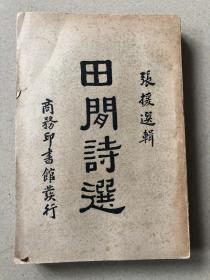 張援選輯
田閒詩選
商務印書館發行